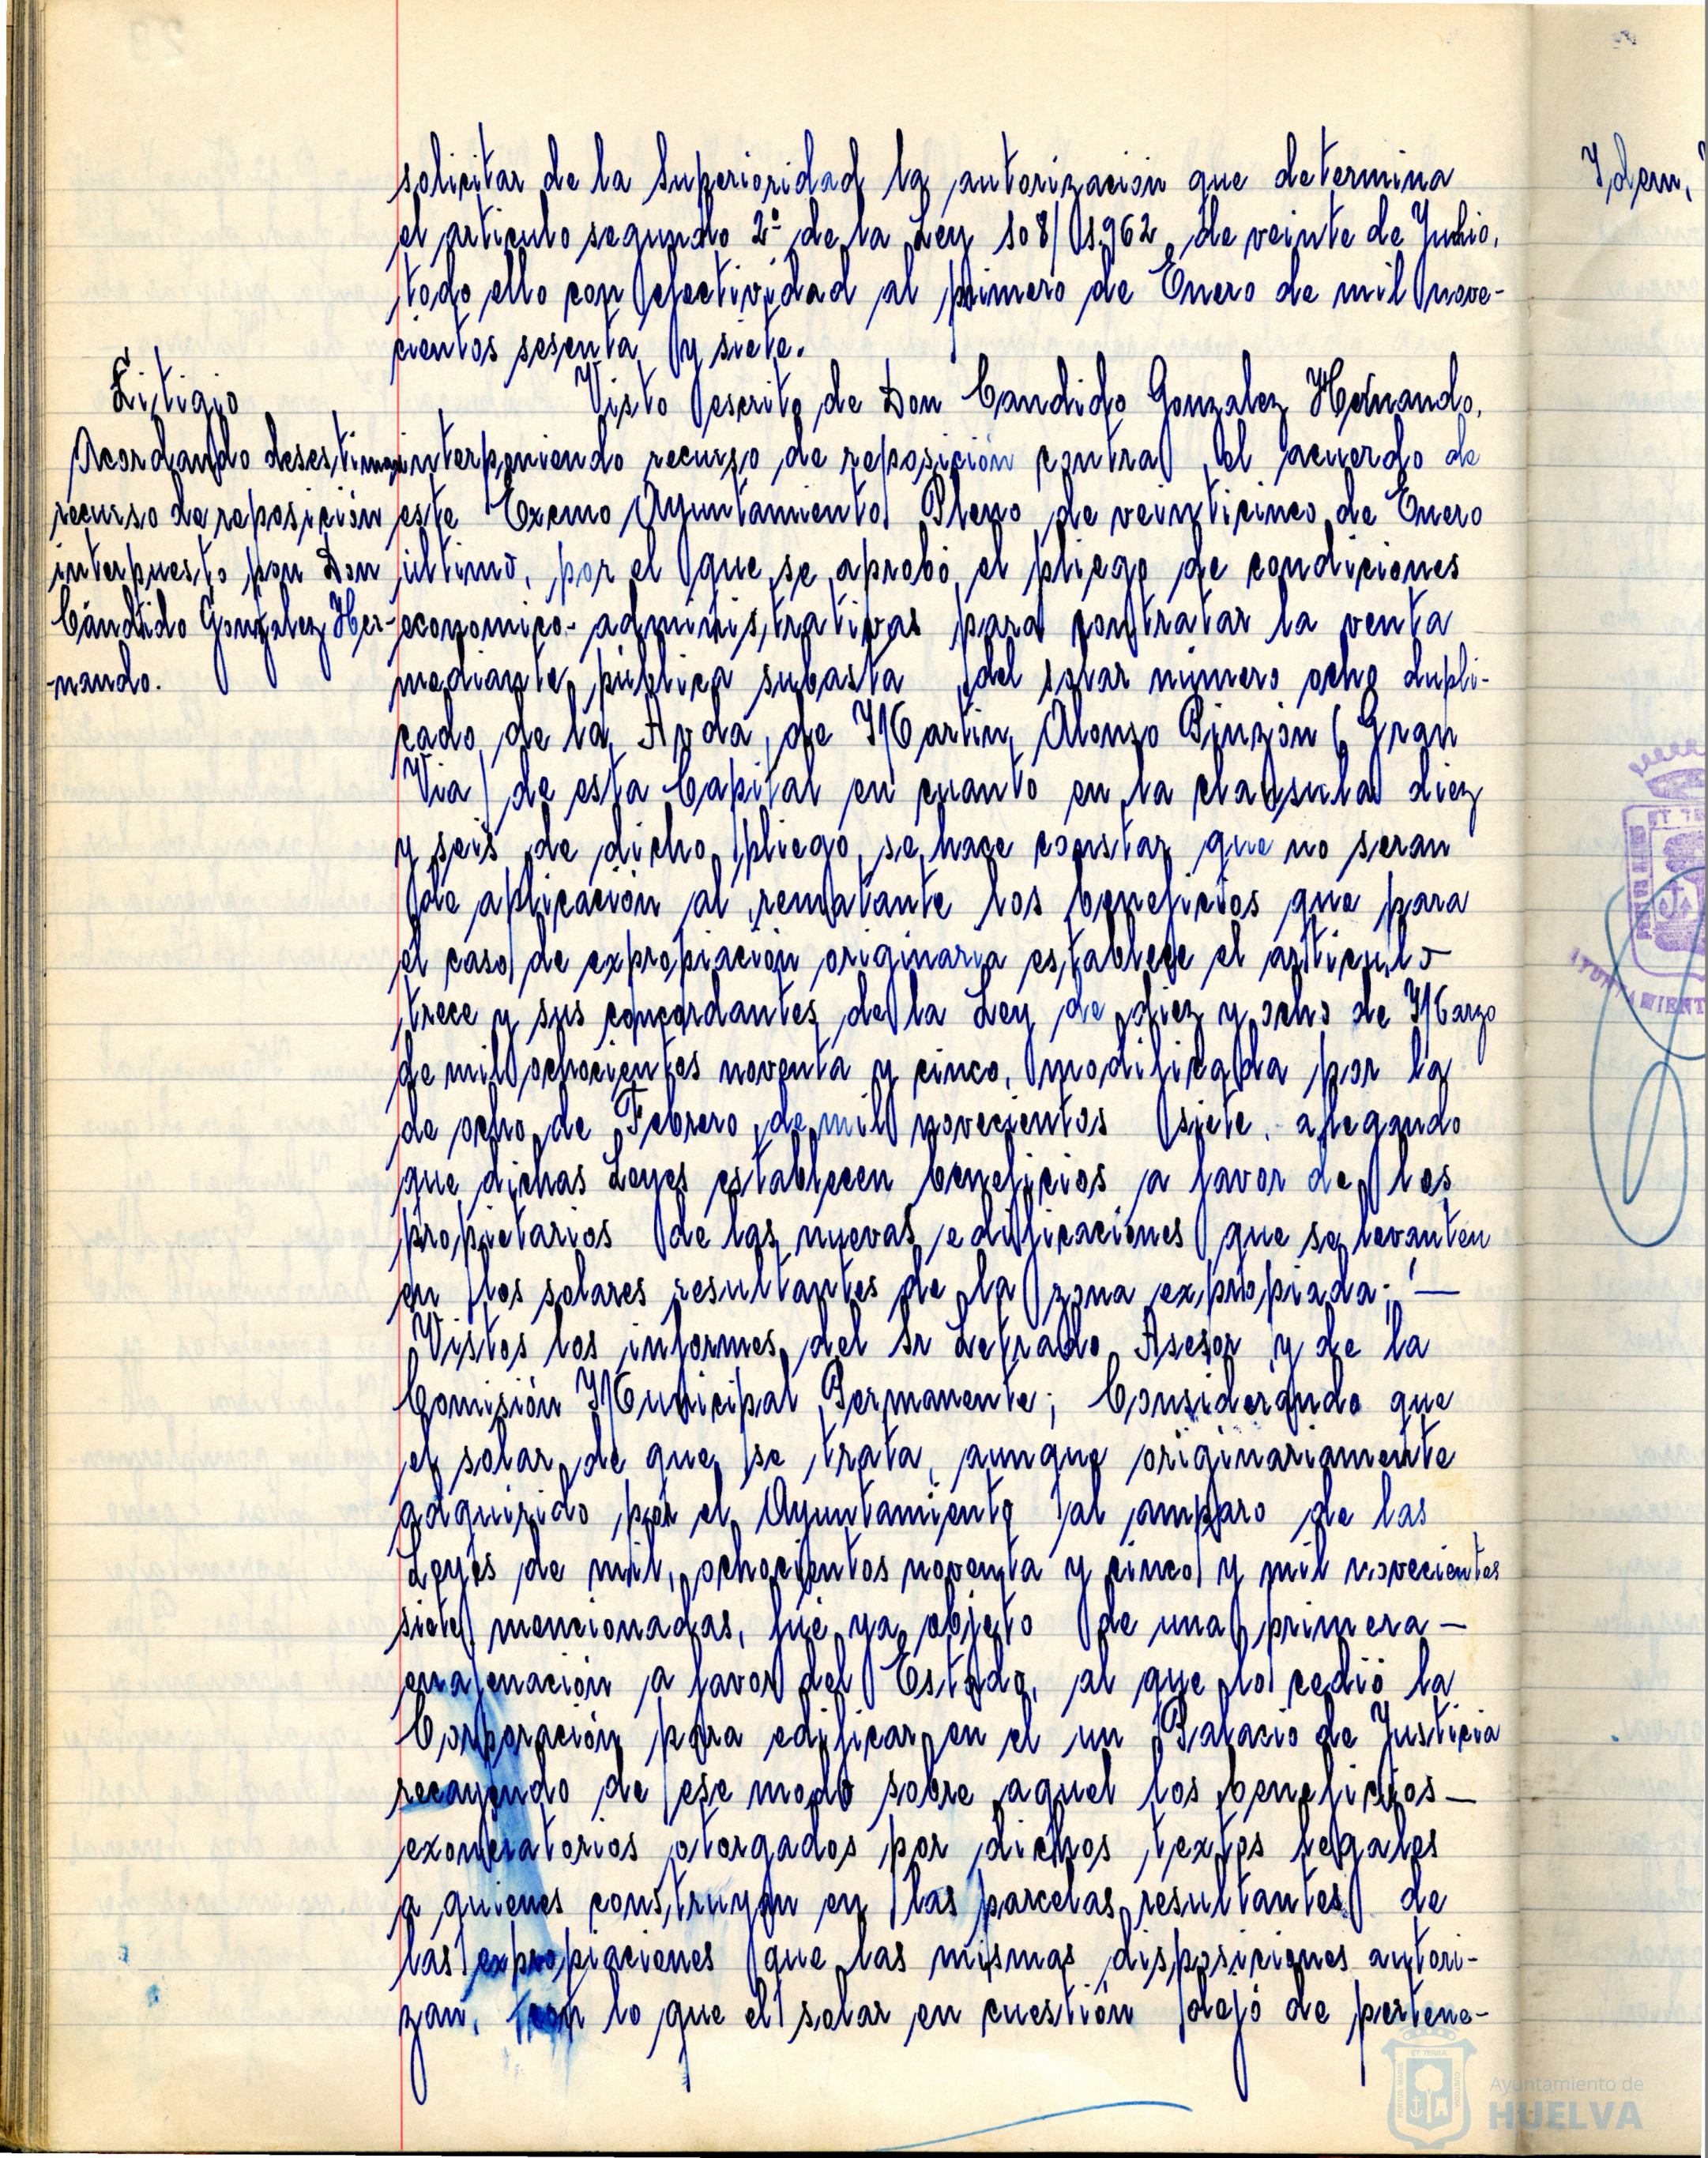 solicitar de la Superioridad la autorización que determina
el articulo segundo 2º de la Ley 108/1.962, de veinte de Julio,
todo ello con efectividad al primero de Enero de mil nove-
cientos sesenta y siete.
Litigio
Acordando desestimar
recurso de reposición
interpuesto por Don
Cándido Gonzalez Her-
-nando.
Visto escrito de Don Candido Gonzalez Hernando,
interponiendo recurso de reposición contra el acuerdo de
este Excmo Ayuntamiento Pleno de veinticinco de Enero
ultimo, por el que se aprobó el pliego de condiciones
economico-administrativas para contratar la venta
mediante pública subasta del solar número ocho dupli-
cado de la Avda, de Martin Alonso Pinzón (Gran
Via) de esta Capital en cuanto en la clausula diez
y seis de dicho pliego se hace constar que no seran
de aplicación al rematante los beneficios que para
el caso de expropiación originaria establece el articulo
trece y sus concordantes de la Ley de diez y ocho de Marzo
de mil ochocientos noventa y cinco, modificada por la
de ocho de Febrero de mil novecientos siete, alegando
que dichas Leyes establecen beneficios a favor de los
propietarios de las nuevas edificaciones que se levanten
en los solares resultantes de la zona expropiada; —
Vistos los informes del Sr Letrado Asesor y de la
Comisión Municipal Permanente; Considerando que
el solar de que se trata, aunque originariamente
adquirido por el Ayuntamiento al amparo de las
Leyes de mil, ochocientos noventa y cinco y mil novecientos
siete mencionadas, fué ya objeto de una primera —
enajenación a favor del Estado, al que lo cedió la
Corporación para edificar en el un Palacio de Justicia
recayendo de ese modo sobre aquel los beneficios —
exoneratorios otorgados por dichos textos legales
a quienes construyan en las parcelas resultantes de
las expropiaciones que las mismas disposiciones autori-
zan, con lo que el solar en cuestión dejó de pertene-
Idem,
ET TE
AYUNTAMIENT
Ayuntamiento de
HUELVA